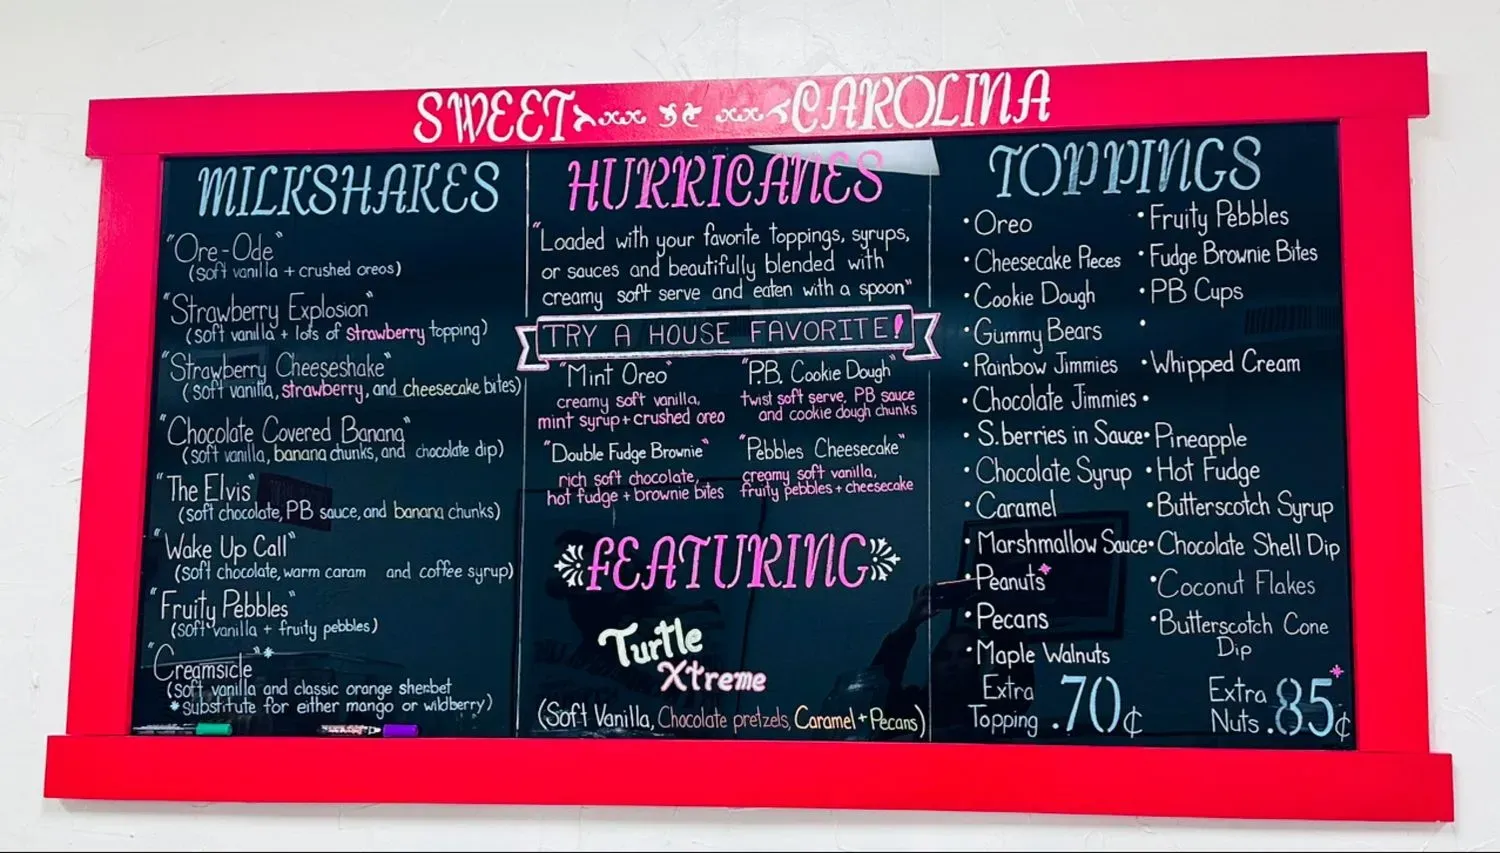 SWEET CAROLINA
MILKSHAKES
"Ore-Ode"
(soft vanilla + crushed oreos)
"Strawberry Explosion"
(soft vanilla + lots of strawberry topping)
"Strawberry Cheeseshake"
(soft vanilla, strawberry, and cheesecake bites)
"Chocolate Covered Banana"
(soft vanilla, banana chunks, and chocolate dip)
"The Elvis"
(soft chocolate, PB sauce, and banana chunks)
"Wake Up Call"
(soft chocolate, warm caram and coffee syrup)
"Fruity Pebbles"
(soft vanilla + fruity pebbles)
"Creamsicle"*
(soft vanilla and classic orange sherbet
*substitute for either mango or wildberry)
HURRICANES
"Loaded with your favorite toppings, syrups,
or sauces and beautifully blended with
creamy soft serve and eaten with a spoon"
TRY A HOUSE FAVORITE!
"Mint Oreo"
creamy soft vanilla,
mint syrup + crushed oreo
"P.B. Cookie Dough"
twist soft serve, PB sauce
and cookie dough chunks
"Double Fudge Brownie"
rich soft chocolate,
hot fudge + brownie bites
"Pebbles Cheesecake"
creamy soft vanilla,
fruity pebbles + cheesecake
FEATURING
Turtle
Xtreme
(Soft Vanilla, Chocolate pretzels, Caramel + Pecans)
TOPPINGS
• Oreo
• Cheesecake Pieces
• Cookie Dough
• Gummy Bears
• Rainbow Jimmies
• Chocolate Jimmies
• S.berries in Sauce
• Chocolate Syrup
• Caramel
• Marshmallow Sauce
• Peanuts*
• Pecans
• Maple Walnuts
• Fruity Pebbles
• Fudge Brownie Bites
• PB Cups
•
• Whipped Cream
•
• Pineapple
• Hot Fudge
• Butterscotch Syrup
• Chocolate Shell Dip
• Coconut Flakes
• Butterscotch Cone
Dip
Extra
Topping .70¢
Extra
Nuts .85¢*